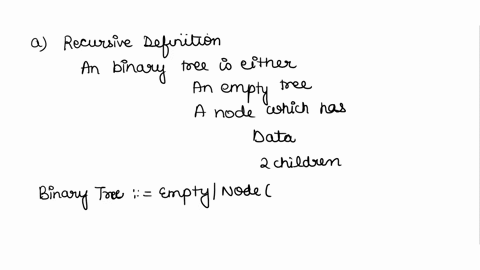 a) Recursive Definition
An binary tree is either
An empty tree
A node which has
Data
2 children
Binary Tree ::= Empty | Node (